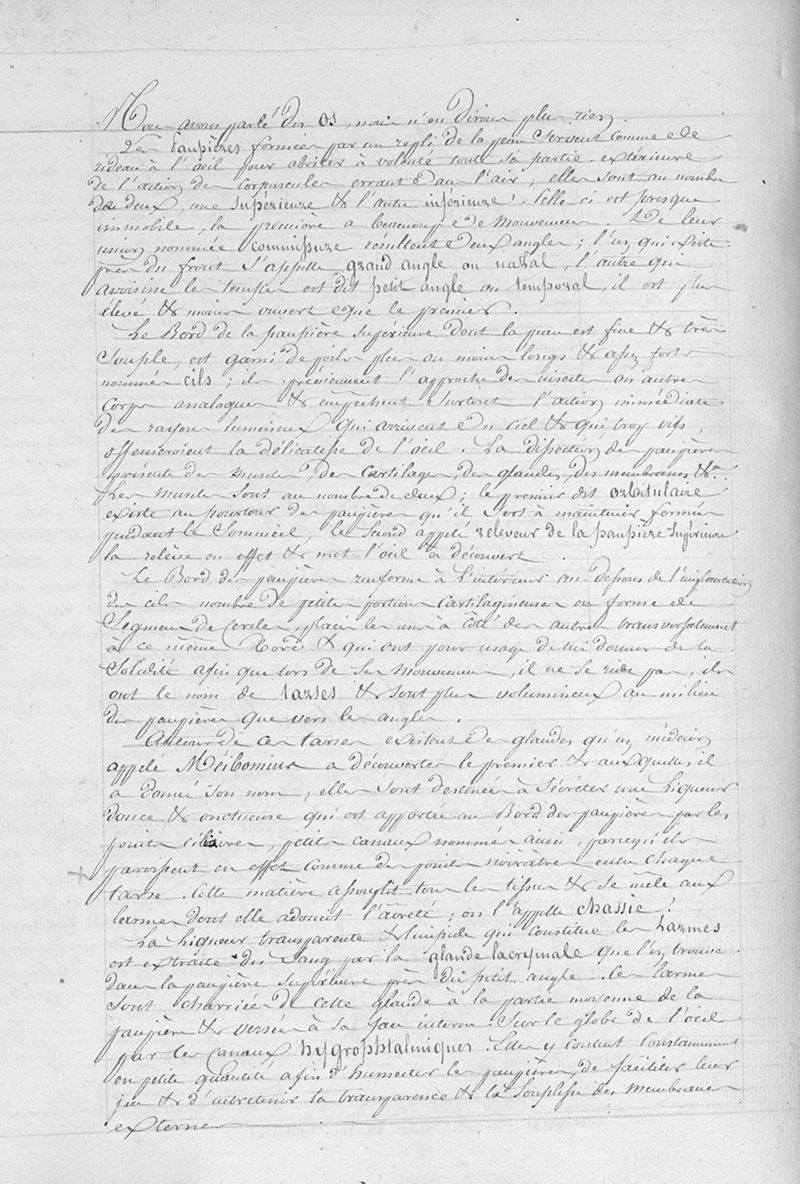 Nous avons parlé des os, nous n'en dirons plus rien.
Les paupières formées par un repli de la peau servent comme de
rideau à l'œil pour abriter à volonté toute sa partie extérieure
de l'action des corpuscules errant dans l'air ; elles sont au nombre
de deux, une supérieure & l'autre inférieure. Celle ci est presque
immobile, la première a beaucoup de mouvemens. De leur
union nommée commissure résultent deux angles ; l'un qui existe
près du front s'appelle grand angle ou nazal, l'autre qui
avoisine les tempes est dit petit angle ou temporal, il est plus
élevé & moins ouvert que le premier.
Le Bord de la paupière supérieure dont la peau est fine & très
souple, est garni de poils plus ou moins longs & assez forts
nommés cils ; ils préviennent l'approche des insectes ou autres
corps analogues & empêchent surtout l'action immédiate
des rayons lumineux qui arrivent du ciel & qui trop vifs,
offenseroient la délicatesse de l'œil. La dissection des paupières
présente des muscles, des cartilages, des glandes, des membranes &a.
Les muscles sont au nombre de deux ; le premier dit orbitulaire
existe au pourtour des paupières qu'il sert à maintenir fermées
pendant le sommeil, le second appelé releveur de la paupière supérieure
la relève en effet & met l'œil à découvert.
Le Bord des paupières renferme à l'intérieur au-dessous de l'implantation
des cils nombre de petites portions cartilagineuses en forme de
segmens de cercles, placés les uns à côté des autres transversalement
à ce même Bord & qui ont pour usage de lui donner de la
solidité afin que lors de ses mouvemens, il ne se ride pas, ils
ont le nom de tarses & sont plus volumineux au milieu
des paupières que vers les angles.
Autour de ces tarses existent des glandes qu'un médecin
appelé Méibomius a découvertes le premier & auxquelles il
a donné son nom ; elles sont destinées à sécréter une liqueur
douce & onctueuse qui est apportée au Bord des paupières par les
points ciliaires, petits canaux nommés ainsi, parcequ'ils
paroissent en effet comme des points noirâtres entre chaque
tarse. Cette matière assouplit tous les tissus & se mêle aux
larmes dont elle adoucit l'âcreté ; on l'appelle chassie.
La liqueur transparente & limpide qui constitue les larmes
est extraite du sang par la glande lacrymale que l'on trouve
dans la paupière supérieure près du petit angle. Les larmes
sont charriées de cette glande à la partie moyenne de la
paupière & versées à sa face interne sur le globe de l'œil
par les canaux hygrophtalmiques. Elles y coulent constamment
en petite quantité afin d'humecter les paupières, de faciliter leur
jeu & d'entretenir la transparence & la souplesse des membranes
externes